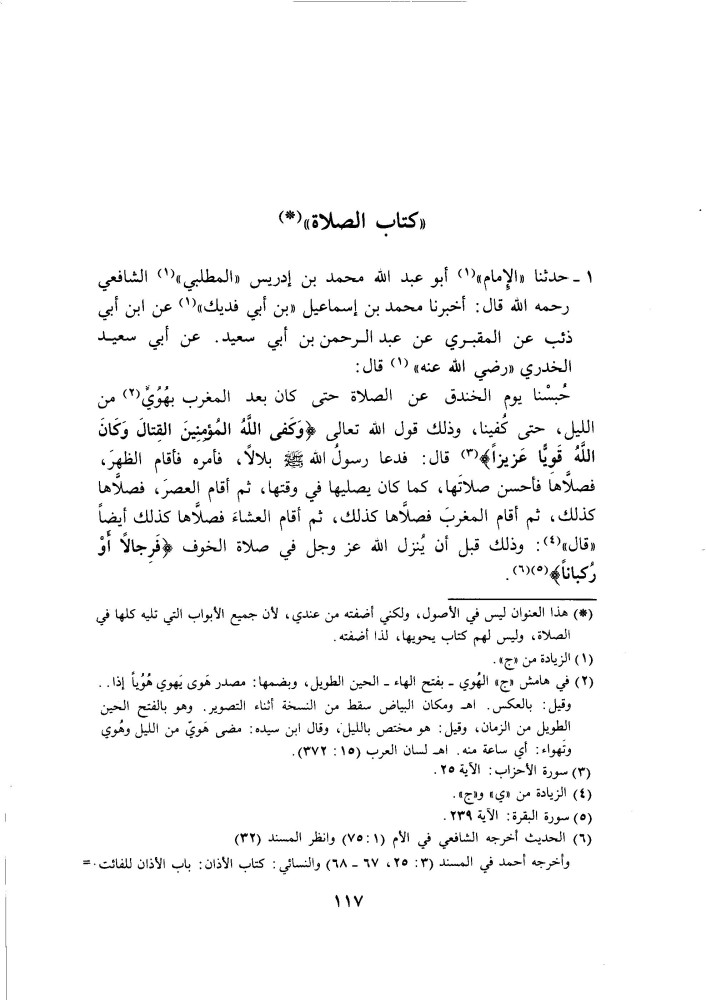 «كتاب الصلاة»(*)
١ - حدثنا «الإِمام»(١) أبو عبد الله محمد بن إدريس «المطلبي»(١) الشافعي
رحمه الله قال: أخبرنا محمد بن إسماعيل «بن أبي فديك»(١) عن ابن أبي
ذئب عن المقبري عن عبد الرحمن بن أبي سعيد. عن أبي سعيد
الخدري «رضي الله عنه» (١) قال:
حُبسْنا يوم الخندق عن الصلاة حتى كان بعد المغرب بهُوُيٍّ(٢) من
الليل، حتى كُفينا، وذلك قول الله تعالى ﴿وَكَفى اللَّهُ المُؤمِنينَ القِتالَ وَكَانَ
اللَّهُ قَويًّا عَزيزاً﴾(٣) قال: فدعا رسولُ الله ﷺ بلالًا، فأمره فأقام الظهرَ،
فصلَّاها فأحسن صلاتَها، كما كان يصليها في وقتها، ثم أقام العصرَ، فصلَّاها
كذلك، ثم أقام المغربَ فصلَّاها كذلك، ثم أقام العشاءَ فصلَّاها كذلك أيضاً
«قال»(٤): وذلك قبل أن يُنزل الله عز وجل في صلاة الخوف ﴿فَرِجالًا أَوْ
رُكباناً﴾(٥)(٦).
(*) هذا العنوان ليس في الأصول، ولكني أضفته من عندي، لأن جميع الأبواب التي تليه كلها في
الصلاة، وليس لهم كتاب يحويها، لذا أضفته.
(١) الزيادة من «ج».
(٢) في هامش «ج» الهُوي - بفتح الهاء - الحين الطويل، وبضمها: مصدر هَوى يَهوي هُوُياً إذا..
وقيل: بالعكس. اهـ ومكان البياض سقط من النسخة أثناء التصوير. وهو بالفتح الحين
الطويل من الزمان، وقيل: هو مختص بالليل، وقال ابن سيده: مضى هَويّ من الليل وهُوي
وتَهواء: أي ساعة منه. اهـ لسان العرب (١٥: ٣٧٢).
(٣) سورة الأحزاب: الآية ٢٥.
(٤) الزيادة من «ي» و«ج».
(٥) سورة البقرة: الآية ٢٣٩.
(٦) الحديث أخرجه الشافعي في الأم (١: ٧٥) وانظر المسند (٣٢)
وأخرجه أحمد في المسند (٣: ٢٥، ٦٧ - ٦٨) والنسائي: كتاب الأذان: باب الأذان للفائت. =
١١٧